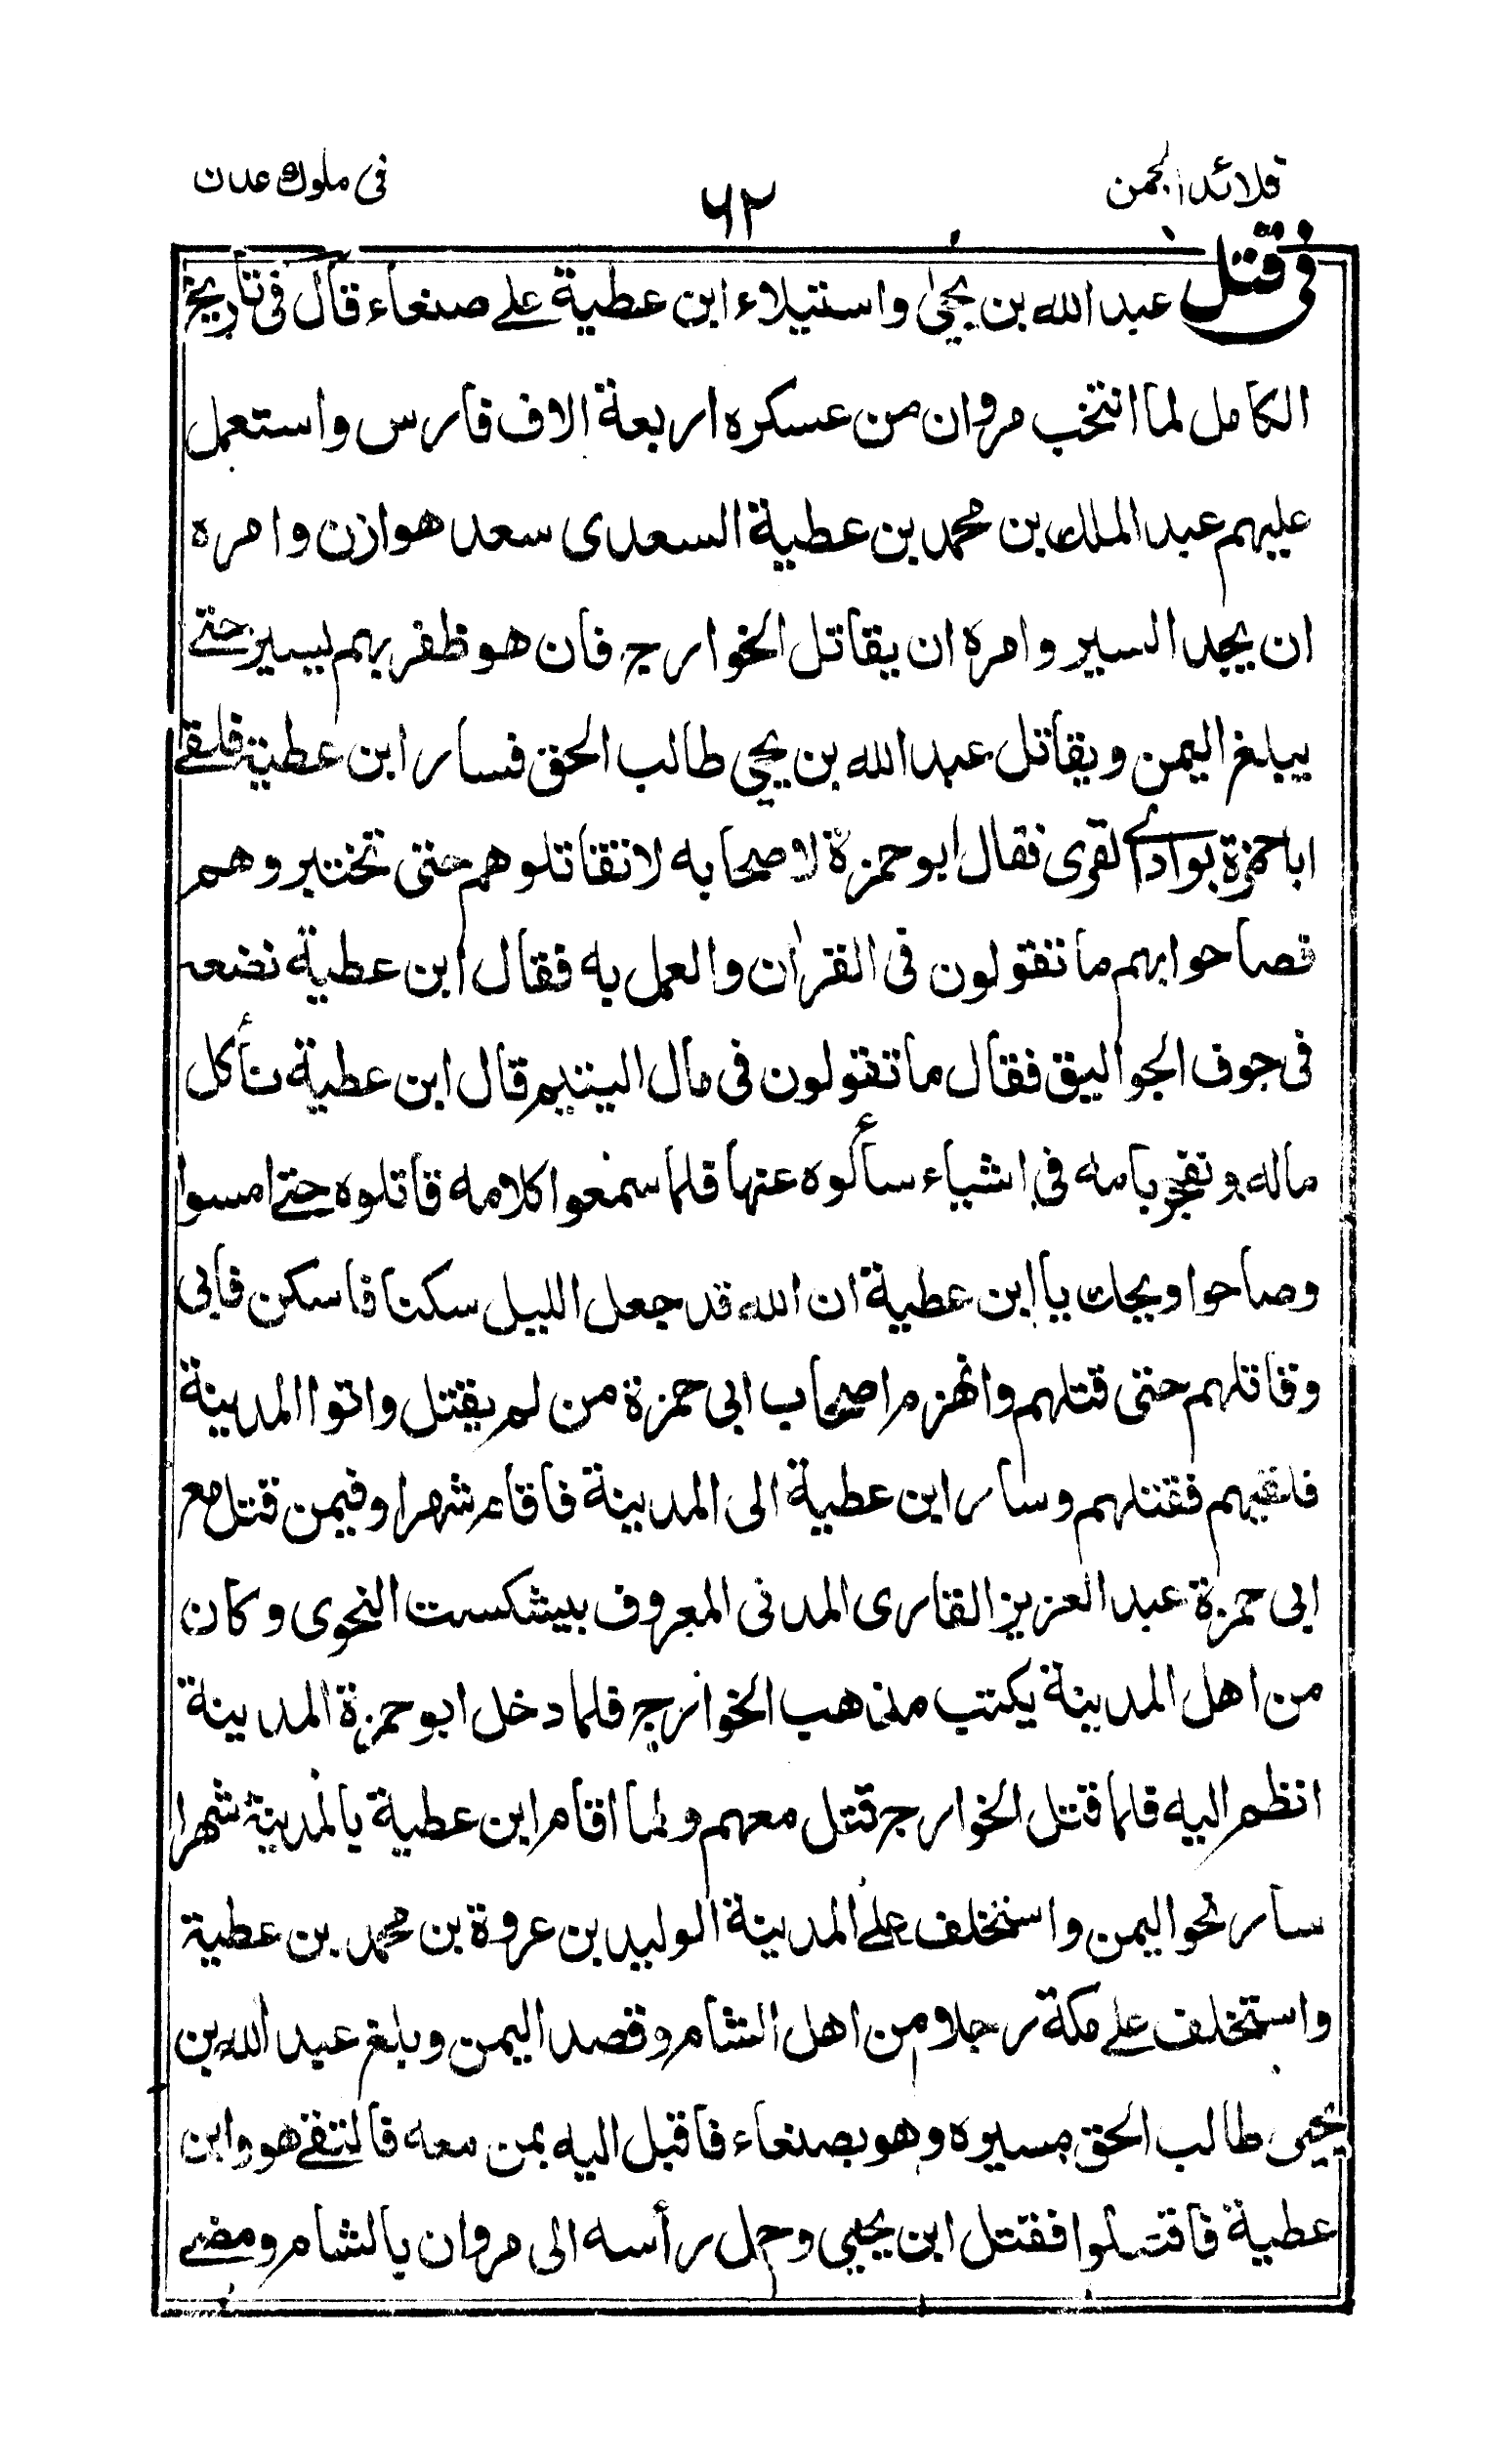 قلائد الجمن
٦٢
فى ملوك عدن
فى قتل عبد الله بن يحيٰى واستيلاء ابن عطية على صنعاء قال فى تاريخ
الكامل لما انتخب مروان من عسكره اربعة الاف فارس واستعمل
عليهم عبد الملك بن محمد بن عطية السعدى سعد هوازن وامره
ان يجد السير وامره ان يقاتل الخوارج فان هو ظفر بهم يسير حتى
يبلغ اليمن ويقاتل عبد الله بن يحيى طالب الحق فسار ابن عطية فلقى
ابا حمزة بوادى القرى فقال ابو حمزة لاصحابه لا تقاتلوهم حتى تختبروهم
فصاحوا بهم ما تقولون فى القرأن والعمل به فقال ابن عطية نضعه
فى جوف الجواليق فقال ما تقولون فى مال اليتيم قال ابن عطية نأكل
ماله ونفجر بامه فى اشياء سألوه عنها فلما سمعوا كلامه قاتلوه حتى امسوا
وصاحوا ويحك يا ابن عطية ان الله قد جعل الليل سكنا فاسكن فابى
وقاتلهم حتى قتلهم وانهزم اصحاب ابى حمزة من لم يقتل واتوا المدينة
فلقيهم فقتلهم وسار ابن عطية الى المدينة فاقام شهرا وفيمن قتل مع
ابى حمزة عبد العزيز القارى المدنى المعروف بيشكست النحوى وكان
من اهل المدينة يكتب مذهب الخوارج فلما دخل ابو حمزة المدينة
انظم اليه فلما قتل الخوارج قتل معهم ولما اقام ابن عطية بالمدينة شهرا
سار نحو اليمن واستخلف على المدينة الوليد بن عروة بن محمد بن عطية
واستخلف على مكة رجلا من اهل الشام وقصد اليمن وبلغ عبد الله بن
يحيى طالب الحق مسيره وهو بصنعاء فاقبل اليه بمن معه فالتقى هو وابن
عطية فاقتتلوا فقتل ابن يحيى وحمل رأسه الى مروان بالشام ومضى